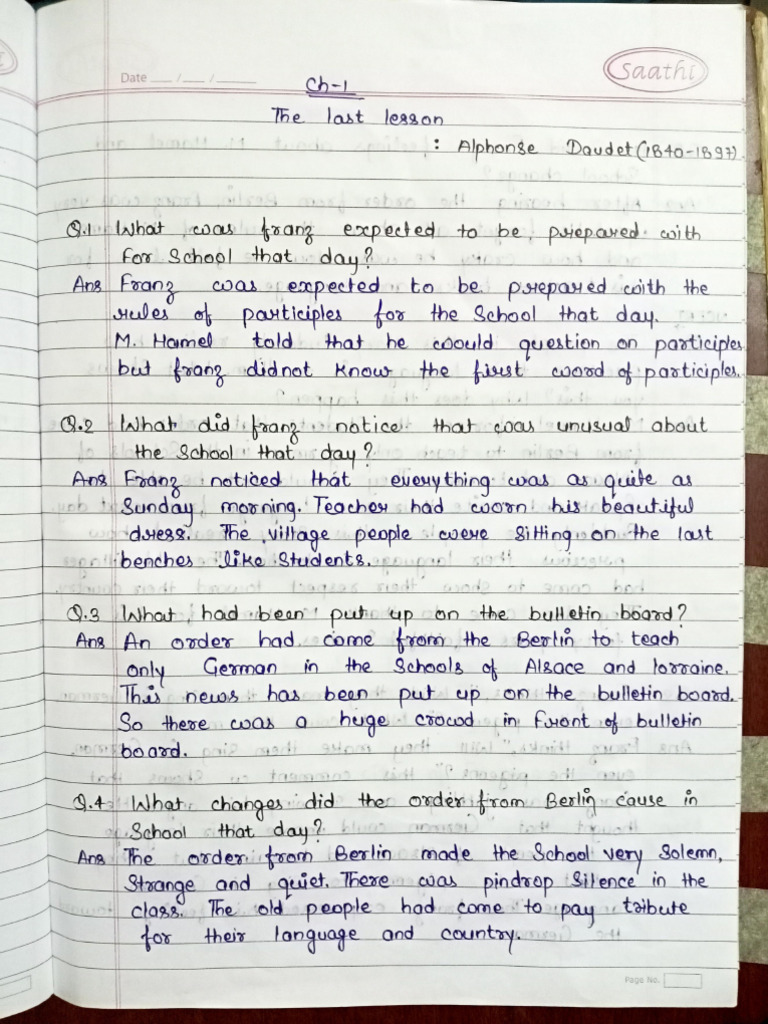 Saathi
Date __/__/____
Ch-1
The last lesson
: Alphonse Daudet (1840-1897)
Q.1 What was franz expected to be prepared with
for School that day?
Ans Franz was expected to be prepared with the
rules of participles for the School that day.
M. Hamel told that he would question on participles
but franz didnot know the first word of participles.
Q.2 What did franz notice that was unusual about
the School that day?
Ans Franz noticed that everything was as quite as
Sunday morning. Teacher had worn his beautiful
dress. The village people were sitting on the last
benches like Students.
Q.3 What had been put up on the bulletin board?
Ans An order had come from the Berlin to teach
only German in the Schools of Alsace and lorraine.
This news has been put up on the bulletin board.
So there was a huge crowd in front of bulletin
board.
Q.4 What changes did the order from Berlin cause in
School that day?
Ans The order from Berlin made the School very Solemn,
Strange and quiet. There was pindrop Silence in the
class. The old people had come to pay tribute
for their language and country.
Page No.